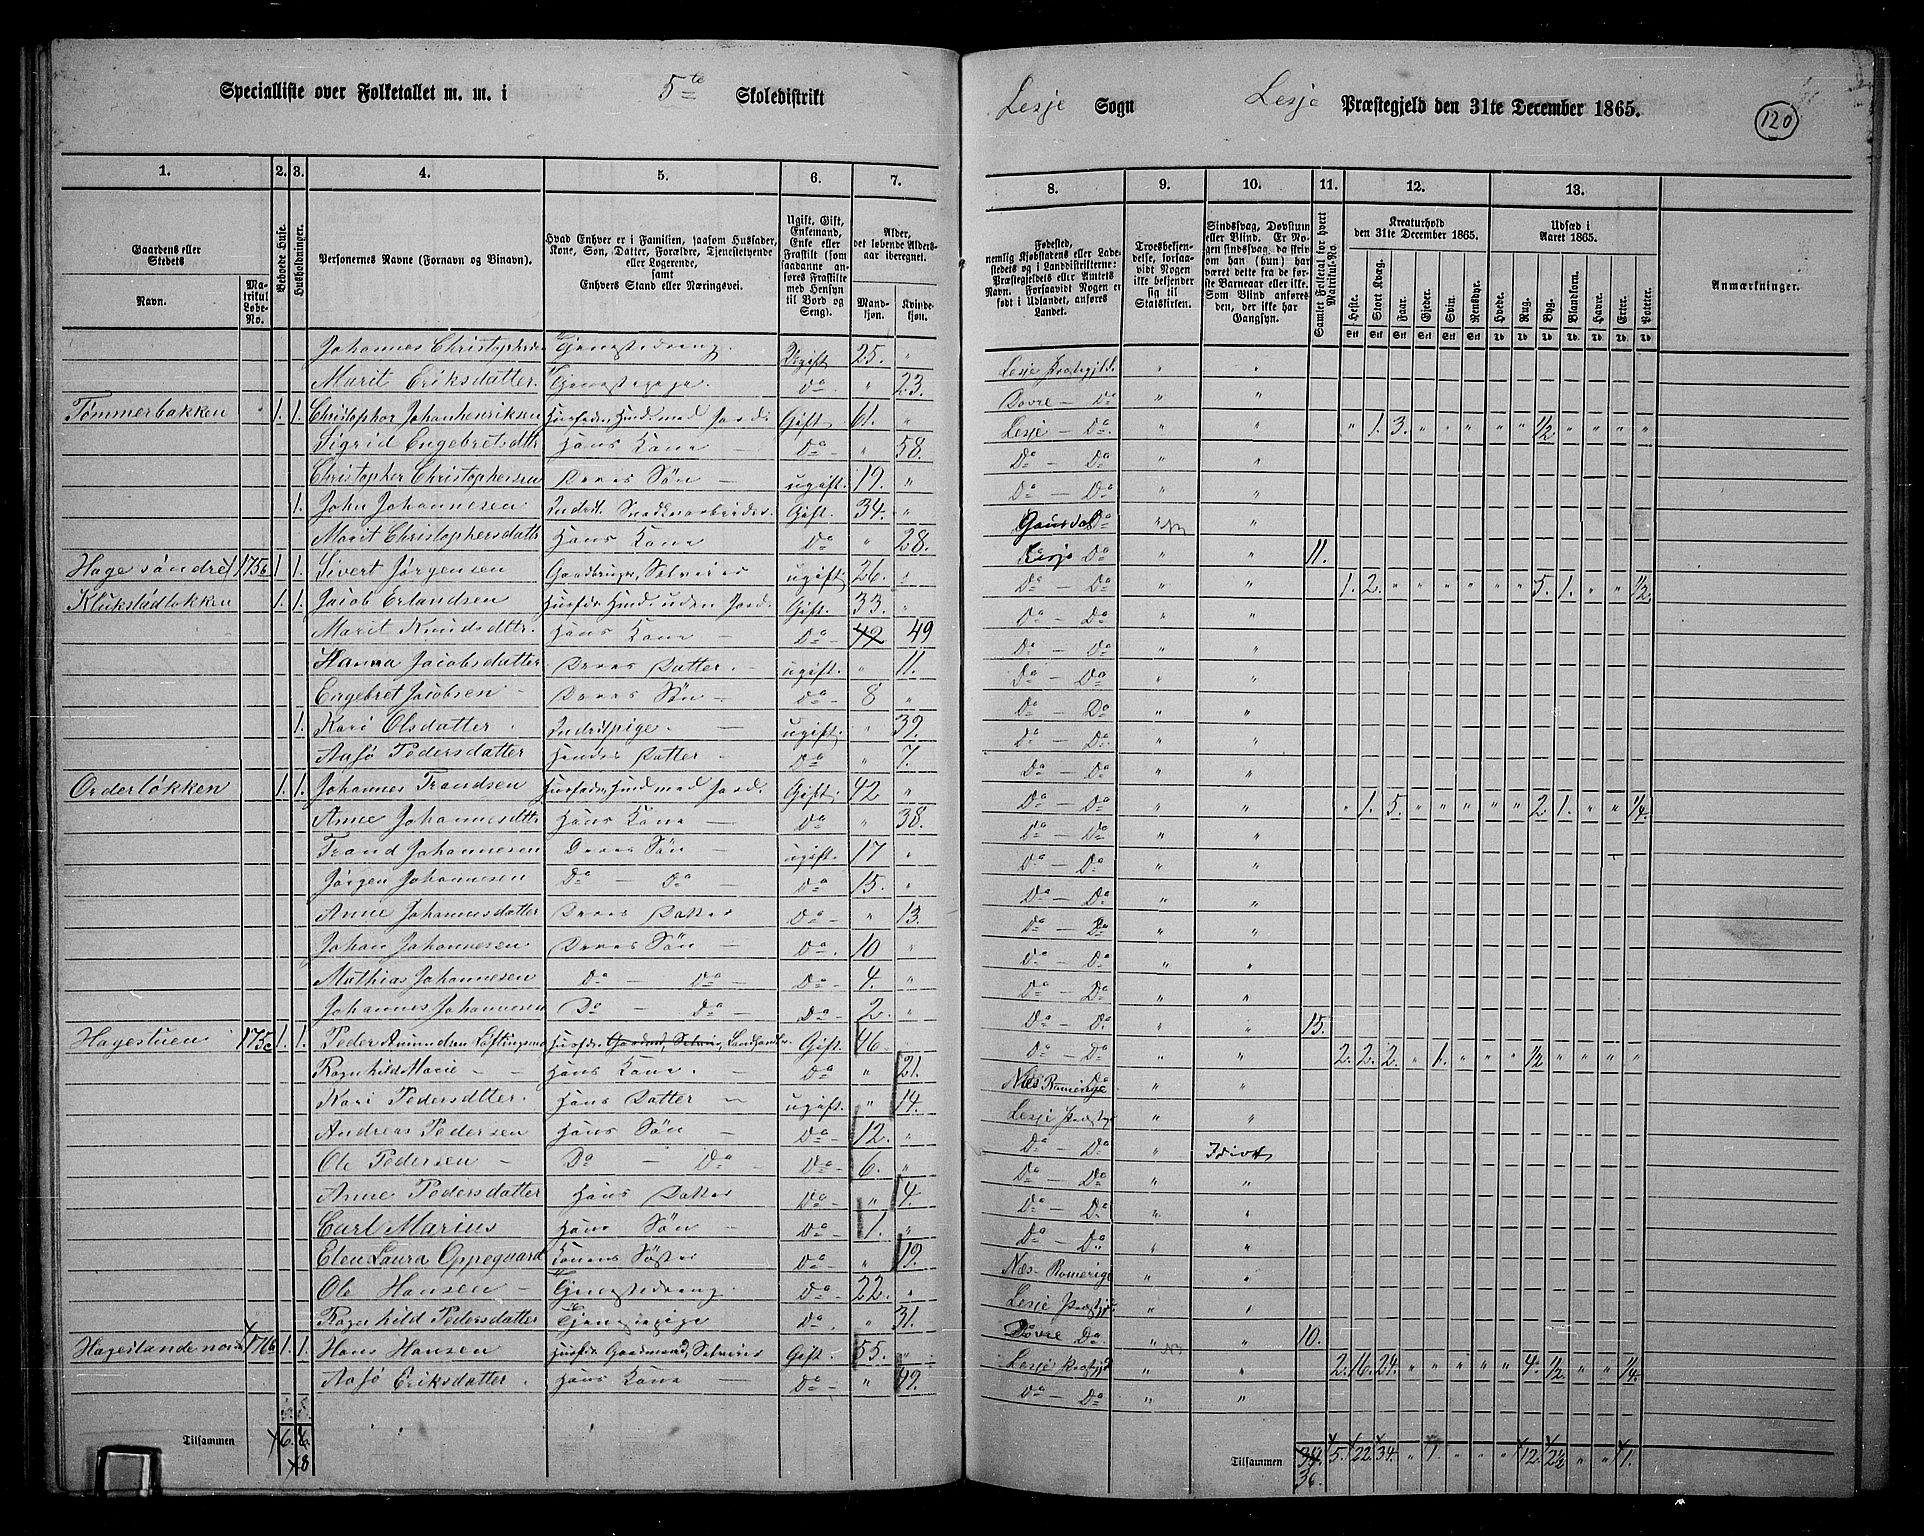 Specialliste over Folketallet m. m. i 5te Skoledistrikt Lesje Sogn Lesje Præstegjeld den 31te December 1865.
120
1. 2. 3. 4. 5. 6. 7. 8. 9. 10. 11. 12. 13.
Gaardens eller Stedets
Navn.
Matrikul Løbe-No.
Beboede Huse.
Husholdninger.
Personernes Navne (Fornavn og Binavn).
Hvad Enhver er i Familien, saasom Husfader, Kone, Søn, Datter, Forældre, Tjenestetyende eller Logerende, samt Enhvers Stand eller Næringsvei.
Ugift, Gift, Enkemand, Enke eller Fraskilt (som saadanne anføres Fraskilte med Hensyn til Bord og Seng).
Alder, det løbende Alders-aar iberegnet.
Mand-kjøn. Kvinde-kjøn.
Fødested, nemlig Kjøbstadens eller Ladestedets og i Landdistrikterne: Præstegjeldets eller Amtets Navn. Forsaavidt Nogen er født i Udlandet, anføres Landet.
Troesbekjendelse, forsaavidt Nogen ikke bekjender sig til Statskirken.
Sindssvag, Døvstum eller Blind. Er Nogen sindssvag, da skrives om han (hun) har været dette fra de første Barneaar eller ikke. Som Blind anføres den, der ikke har Gangsyn.
Samlet Folketal for hvert Matrikul-No.
Kreaturhold den 31te December 1865.
Heste. Stort Kvæg. Faar. Gjeder. Svin. Rensdyr.
Udsæd i Aaret 1865.
Hvede. Rug. Byg. Blandkorn. Havre. Erter. Poteter.
Anmærkninger.
Johannes Christophersen Tjenestedreng. Ugift 25. " Lesje Præstegjeld " "
Marit Eriksdatter. Tjenestepige. Do " 23. Dovre - Do " "
Tømmerbakken 1. 1. Christopher Johanhenriksen Husfader, Husmd. med Jord. Gift. 61. " Lesje - Do. " " " 1. 3. " " " " " 1/2 " " " "
Sigrid Engebretsdttr Hans Kone - Do - " 58. Do - Do " "
Christopher Christophersen Deres Søn - ugift. 19. " Do - Do " "
1. John Johannesen Inderst. Snedkerarbeider. Gift. 34. " Gausdal Do " "
Marit Christophersdattr Hans Kone Do " 28. Lesje Do " " 11.
Hage søndre 175b 1. 1. Sivert Jørgensen Gaardbruger, Selveier ugift 26. " Do - Do " " 1. 2. " " " " " " 5. 1. " " 1/2.
Klukstadløkken 1. 1. Jacob Erlandsen Husfdr. Husmd. uden Jord. Gift. 33. " Do - Do " "
Marit Knudsdttr. Hans Kone - Do - 42 49 Do - Do " "
Hanna Jacobsdatter Deres Datter. - ugift. " 11. Do - Do " "
Engebret Jacobsen - Deres Søn - Do - 8 " Do - Do " "
1. Kari Olsdatter. Inderstpige. - ugift. " 39. Do - Do " "
Pedersdatter Hendes Datter - Do " 7. Do - Do " "
Orderløkken 1. 1. Johannes Trondsen Husfader, Husmd med Jord. Gift. 42 " Do - Do " " " 1. 5. " " " " " 2. 1. " " 1/4.
Anne Johannesdttr Hans Kone - Do " 38. Do - Do " "
Trond Johannesen Deres Søn - ugift. 17 " Do - Do " "
Jørgen Johannesen Do - Do - Do 15. " Do - Do " "
Anne Johannesdatter Deres Datter Do - " 13. Do - Do " "
Johan Johannesen Deres Søn - Do. 10 " Do - Do " "
Mathias Johannesen Do - Do - Do - 4. " Do - Do " "
Johannes Johannesen Do - Do - Do - 2. " Do - Do " " 15.
Hagestuen 175c 1. 1. Peder Amundsen Løftingsmo Husfdr. Gaardbr, Selveier, Landhandler. Gift. 46 " Do - Do " " 2. 2. 2. " 1. " " " 1/2 " " " "
Ragnhild Marie - - Hans Kone. - Do " 21. Næs Romerige Do " "
Kari Pedersdtter. Hans Datter - ugift. " 14. Lesje Præstegj. " "
Andreas Pedersen Hans Søn - Do - 12. " Do - Do " Idiot
Ole Pedersen - Do - Do - Do - 6. " Do - Do " "
Anne Pedersdatter Hans Datter Do - " 4. Do - Do " "
Carl Marius Hans Søn - Do - 1. " Do - Do " "
Elen Laura Oppegaard Konens Søster Do - " 19. Næs - Romerige " "
Ole Hansen - Tjenestedreng Do - 22. " Lesje Præstegj. " "
Ragnhild Pedersdatter Tjenestepige Do. " 31. Dovre Do. " " 10.
Hageslande nordre 176 1. 1. Hans Hansen Husfdr Gaardmand, Selveier Gift. 55. " Lesje Præstegj. " " 2. 16. 24. " " " " " 4. 1/2. " " 1/4.
Eriksdatter. Hans Kone - Do - " 49. Do - Do " "
Tilsammen 6. 6. 8
Tilsammen 34. 36. 5. 22. 34. " 1. " " " 12. 2 1/2 " " 1.